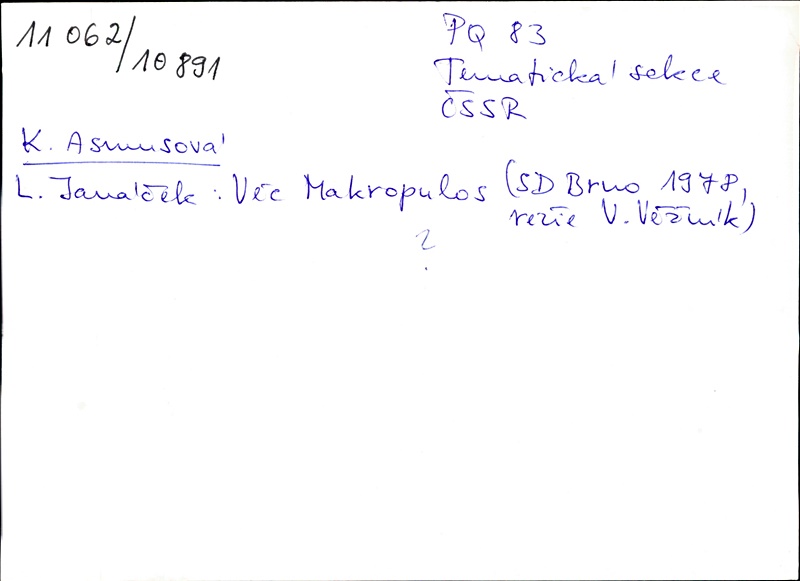 11 062/10 891
PQ 83
Tematická sekce
ČSSR
K. Asmusová
L. Janáček: Věc Makropulos (SD Brno 1978,
režie V. Věžník)
?